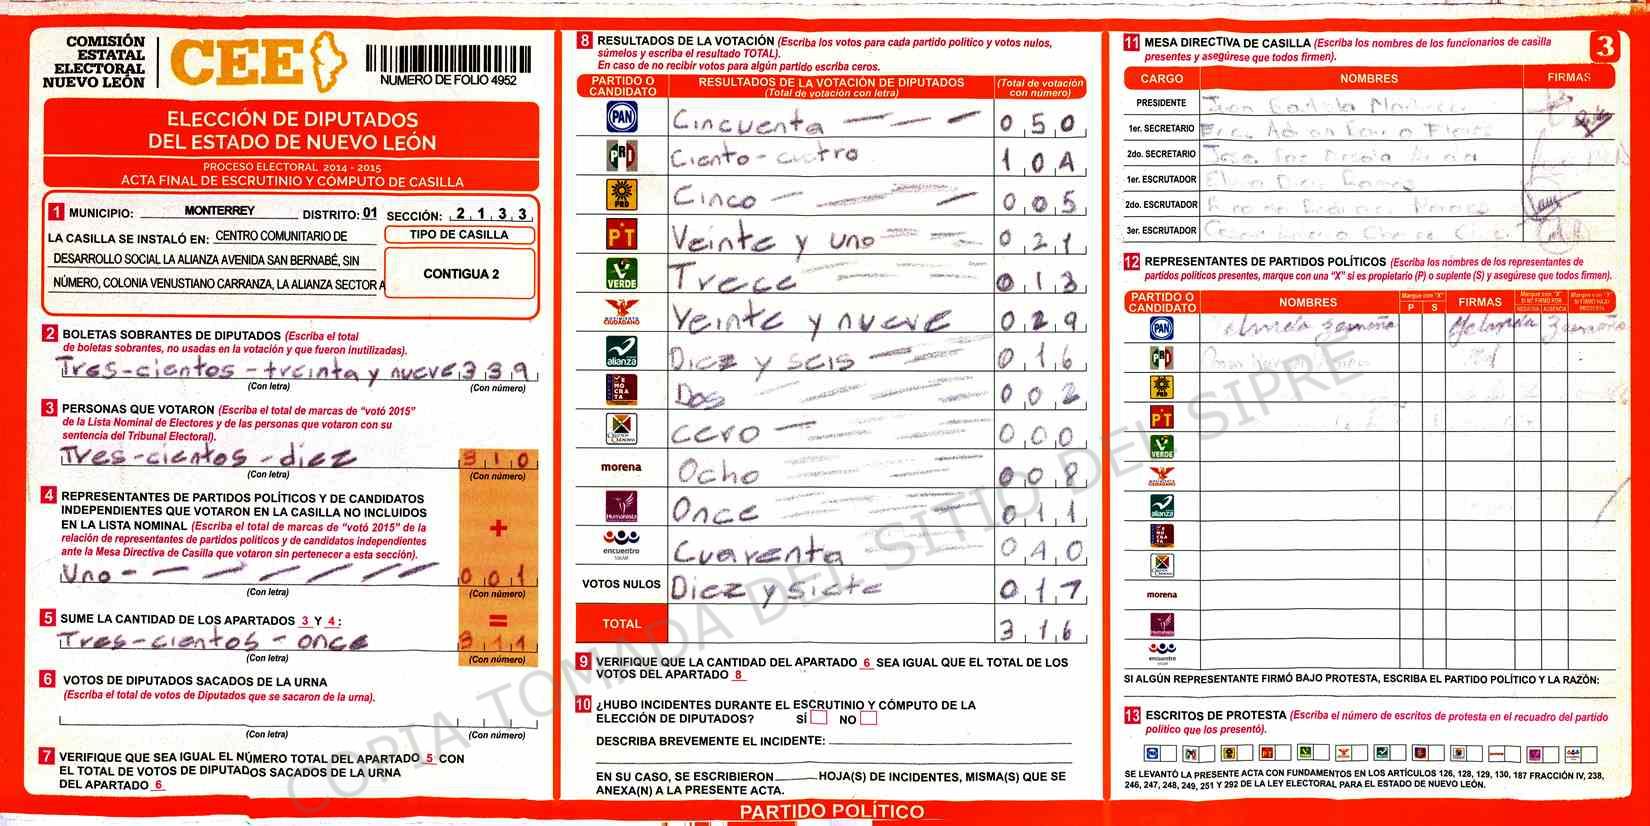 COMISIÓN
ESTATAL
ELECTORAL
NUEVO LEÓN
CEE
NUMERO DE FOLIO 4952
ELECCIÓN DE DIPUTADOS
DEL ESTADO DE NUEVO LEÓN
PROCESO ELECTORAL 2014 - 2015
ACTA FINAL DE ESCRUTINIO Y CÓMPUTO DE CASILLA
1 MUNICIPIO: MONTERREY DISTRITO: 01 SECCIÓN: 2 1 3 3
LA CASILLA SE INSTALÓ EN: CENTRO COMUNITARIO DE
DESARROLLO SOCIAL LA ALIANZA AVENIDA SAN BERNABÉ, SIN
NÚMERO, COLONIA VENUSTIANO CARRANZA, LA ALIANZA SECTOR A
TIPO DE CASILLA
CONTIGUA 2
2 BOLETAS SOBRANTES DE DIPUTADOS (Escriba el total
de boletas sobrantes, no usadas en la votación y que fueron inutilizadas).
Tres-cientos - treinta y nueve 3 3 9
(Con letra) (Con número)
3 PERSONAS QUE VOTARON (Escriba el total de marcas de “votó 2015”
de la Lista Nominal de Electores y de las personas que votaron con su
sentencia del Tribunal Electoral).
Tres-cientos - diez 3 1 0
(Con letra) (Con número)
4 REPRESENTANTES DE PARTIDOS POLÍTICOS Y DE CANDIDATOS
INDEPENDIENTES QUE VOTARON EN LA CASILLA NO INCLUIDOS
EN LA LISTA NOMINAL (Escriba el total de marcas de “votó 2015” de la
relación de representantes de partidos políticos y de candidatos independientes
ante la Mesa Directiva de Casilla que votaron sin pertenecer a esta sección).
+
Uno 0 0 1
(Con letra) (Con número)
5 SUME LA CANTIDAD DE LOS APARTADOS 3 Y 4 :
=
Tres-cientos - once 3 1 1
(Con letra) (Con número)
6 VOTOS DE DIPUTADOS SACADOS DE LA URNA
(Escriba el total de votos de Diputados que se sacaron de la urna).
(Con letra) (Con número)
7 VERIFIQUE QUE SEA IGUAL EL NÚMERO TOTAL DEL APARTADO 5 CON
EL TOTAL DE VOTOS DE DIPUTADOS SACADOS DE LA URNA
DEL APARTADO 6
8 RESULTADOS DE LA VOTACIÓN (Escriba los votos para cada partido político y votos nulos,
súmelos y escriba el resultado TOTAL).
En caso de no recibir votos para algún partido escriba ceros.
PARTIDO O CANDIDATO RESULTADOS DE LA VOTACIÓN DE DIPUTADOS (Total de votación con letra) (Total de votación con número)
PAN Cincuenta 0 5 0
PRD Ciento-cuatro 1 0 4
PRD Cinco 0 0 5
PT Veinte y uno 0 2 1
VERDE Trece 0 1 3
MOVIMIENTO CIUDADANO Veinte y nueve 0 2 9
alianza Diez y seis 0 1 6
DEMOCRATA Dos 0 0 2
cero 0 0 0
morena Ocho 0 0 8
Humanista Once 0 1 1
encuentro Cuarenta 0 4 0
VOTOS NULOS Diez y siete 0 1 7
TOTAL 3 1 6
9 VERIFIQUE QUE LA CANTIDAD DEL APARTADO 6 SEA IGUAL QUE EL TOTAL DE LOS
VOTOS DEL APARTADO 8
10 ¿HUBO INCIDENTES DURANTE EL ESCRUTINIO Y CÓMPUTO DE LA
ELECCIÓN DE DIPUTADOS? SÍ NO
DESCRIBA BREVEMENTE EL INCIDENTE:
EN SU CASO, SE ESCRIBIERON HOJA(S) DE INCIDENTES, MISMA(S) QUE SE
ANEXA(N) A LA PRESENTE ACTA.
PARTIDO POLÍTICO
3
11 MESA DIRECTIVA DE CASILLA (Escriba los nombres de los funcionarios de casilla
presentes y asegúrese que todos firmen).
CARGO NOMBRES FIRMAS
PRESIDENTE
1er. SECRETARIO
2do. SECRETARIO
1er. ESCRUTADOR
2do. ESCRUTADOR
3er. ESCRUTADOR
12 REPRESENTANTES DE PARTIDOS POLÍTICOS (Escriba los nombres de los representantes de
partidos políticos presentes, marque con una “X” si es propietario (P) o suplente (S) y asegúrese que todos firmen).
PARTIDO O CANDIDATO NOMBRES Marque con "X" P S FIRMAS
PAN
PRD
PRD
PT
VERDE
alianza
morena
encuentro
SI ALGÚN REPRESENTANTE FIRMÓ BAJO PROTESTA, ESCRIBA EL PARTIDO POLÍTICO Y LA RAZÓN:
13 ESCRITOS DE PROTESTA (Escriba el número de escritos de protesta en el recuadro del partido
político que los presentó).
SE LEVANTÓ LA PRESENTE ACTA CON FUNDAMENTOS EN LOS ARTÍCULOS 126, 128, 129, 130, 187 FRACCIÓN IV, 238,
246, 247, 248, 249, 251 Y 292 DE LA LEY ELECTORAL PARA EL ESTADO DE NUEVO LEÓN.
COPIA TOMADA DEL SITIO DEL SIPRE